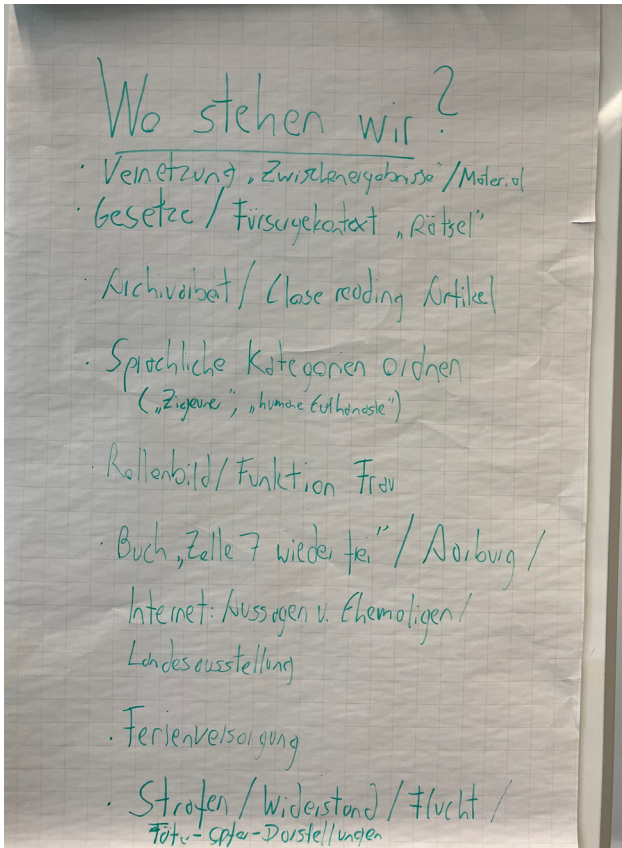 Wo stehen wir?
· Vernetzung „Zwischenergebnisse"/Material
· Gesetze / Fürsorgekontext „Rätsel"
· Archivarbeit / Close reading Artikel
· Sprachliche Kategorien ordnen
(„Zigeuner", „humane Euthanasie")
· Rollenbild / Funktion Frau
· Buch „Zelle 7 wieder frei" / Aarburg /
Internet: Aussagen v. Ehemaligen /
Landesausstellung
· Ferienversorgung
· Strafen / Widerstand / Flucht /
Täter-Opfer-Darstellungen